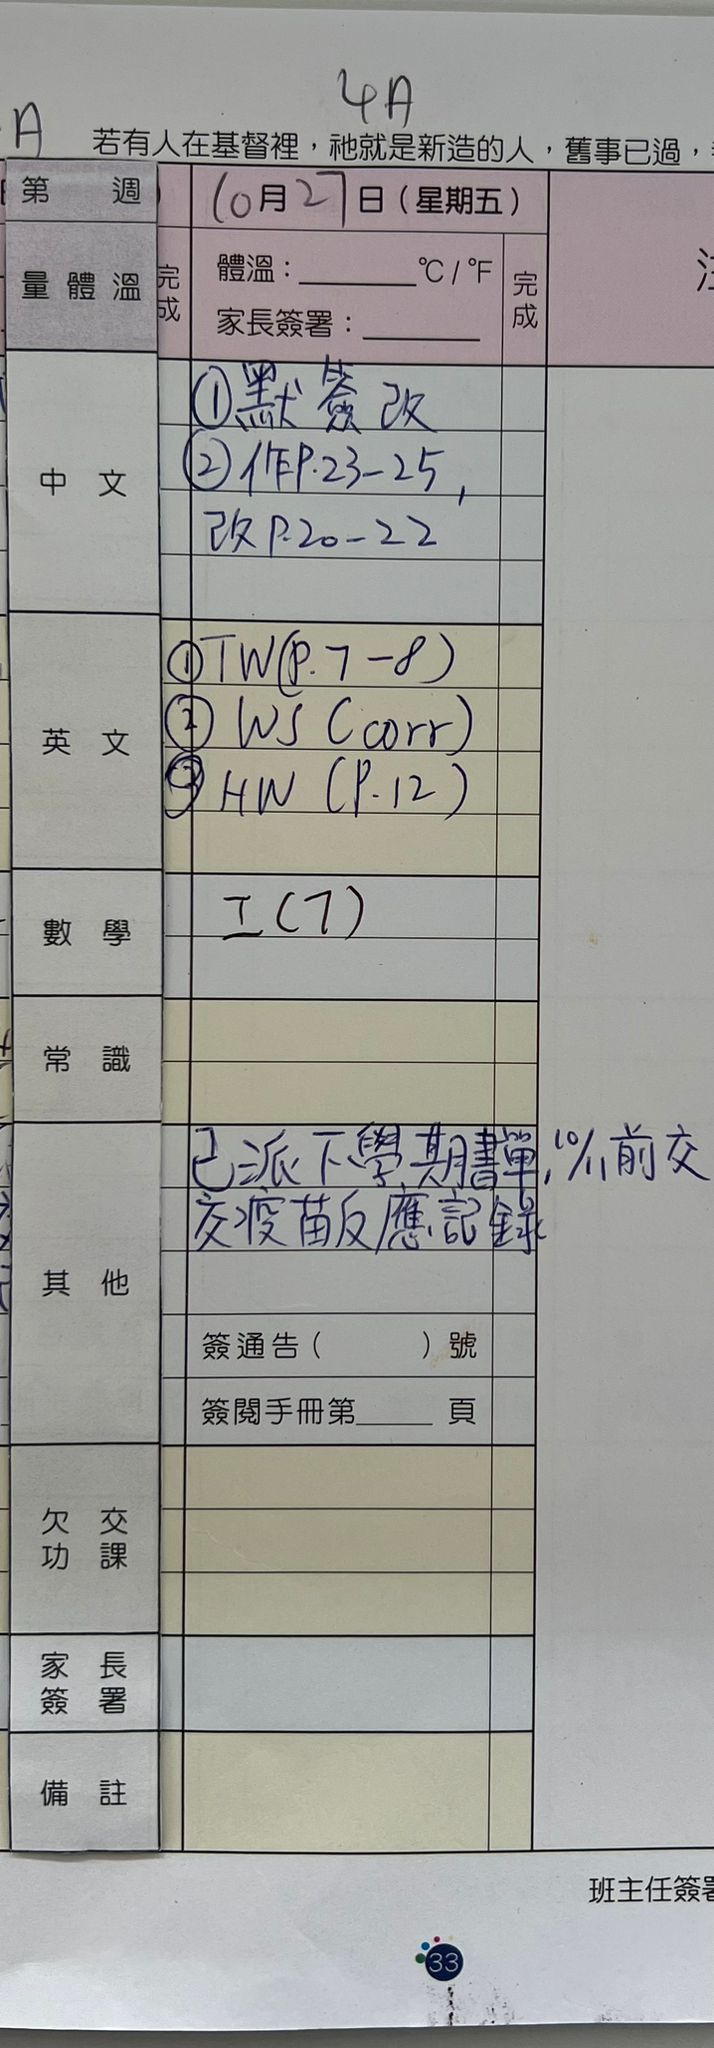 4A
A 若有人在基督裡，祂就是新造的人，舊事已過，
第 週
10月27日（星期五）
量體溫
完成
體溫：______°C / °F
家長簽署：______
完成
中文
①默簽改
②作P.23-25，
改P.20-22
英文
①TW(P.7-8)
② WS (corr)
③ HW (P.12)
數學
工(7)
常識
其他
已派下學期書單，10/11前交
交疫苗反應記錄
簽通告（ ）號
簽閱手冊第____頁
欠交功課
家長簽署
備註
班主任簽署
33